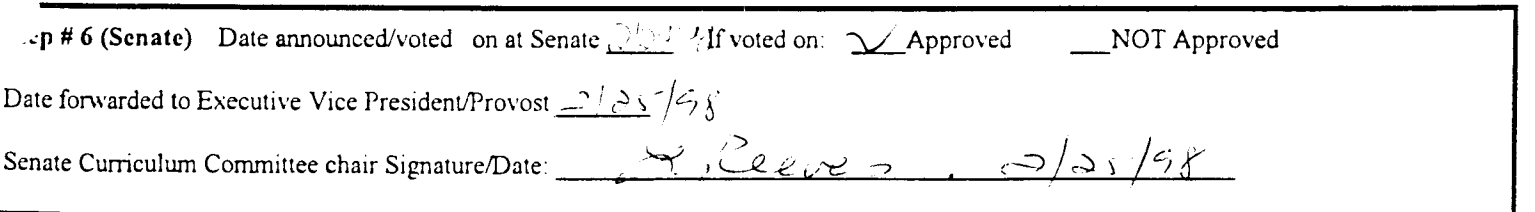 .ep # 6 (Senate) Date announced/voted on at Senate If voted on: ✓ Approved ___NOT Approved
Date forwarded to Executive Vice President/Provost 2/25/98
Senate Curriculum Committee chair Signature/Date: Reeves 2/25/98